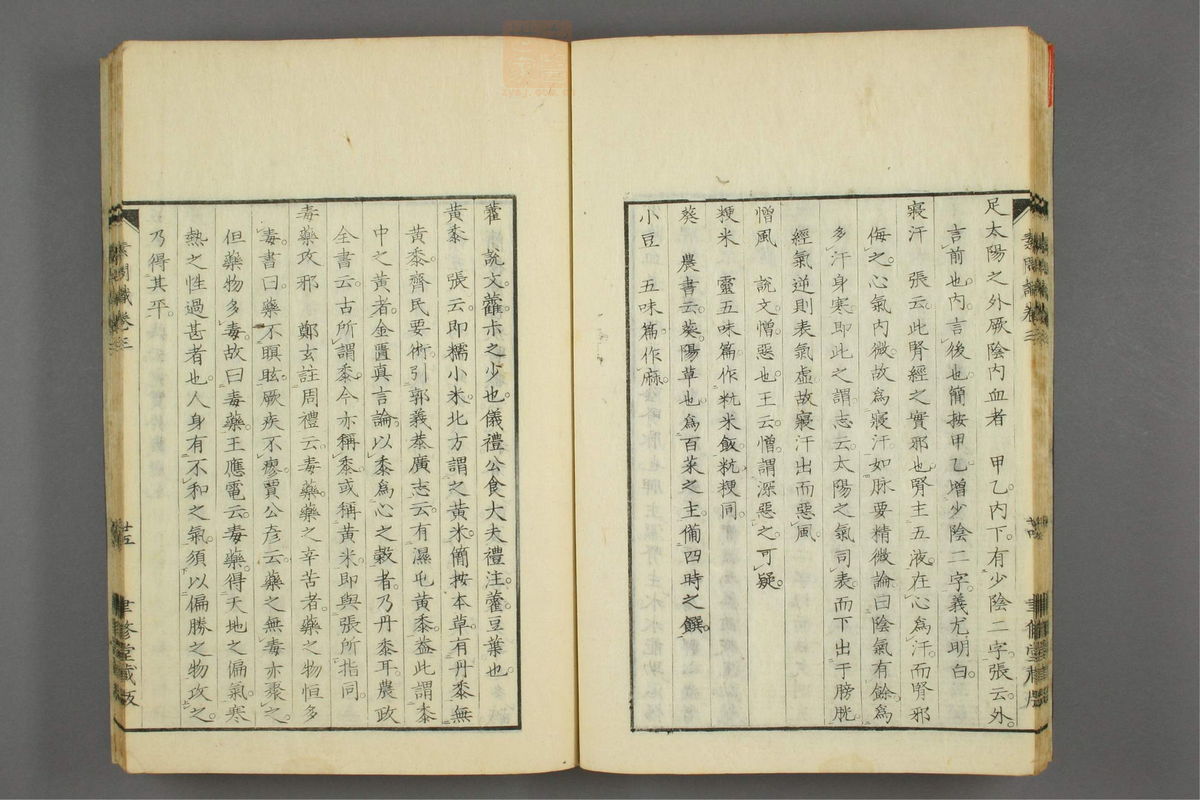 足太陽之外厥陰内血者　甲乙内下有少陰二字張云外
言前也内言後也簡按甲乙增少陰二字義尤明白
寢汗　張云此腎經之實邪也腎主五液在心爲汗而腎邪
侮之心氣内微故爲寢汗如脉要精微論曰陰氣有餘爲
多汗身寒即此之謂志云太陽之氣司表而下出于膀胱
經氣逆則表氣虛故寢汗出而惡風
憎風　說文憎惡也王云憎謂深惡之可疑
粳米　靈五味篇作秔米飯秔粳同
葵　農書云葵陽草也爲百菜之主備四時之饌
小豆　五味篇作麻
藿　說文虇尗之少也儀禮公食大夫禮注藿豆葉也
黃黍　張云即糯小米北方謂之黃米簡按本草有丹黍無
黃黍齊民要術引郭義恭廣志云有濕屯黃黍蓋此謂黍
中之黃者金匱真言論以黍爲心之穀者乃丹黍耳農政
全書云古所謂黍今亦稱黍或稱黃米即與張所指同
毒藥攻邪　鄭玄註周禮云毒藥藥之辛苦者藥之物恒多
毒書曰藥不瞑眩厥疾不瘳賈公彥云藥之無毒亦聚之
但藥物多毒故曰毒藥王應電云毒藥得天地之偏氣寒
熱之性過甚者也人身有不和之氣須以偏勝之物攻之
乃得其平
素問識卷三
廿五
聿修堂藏版